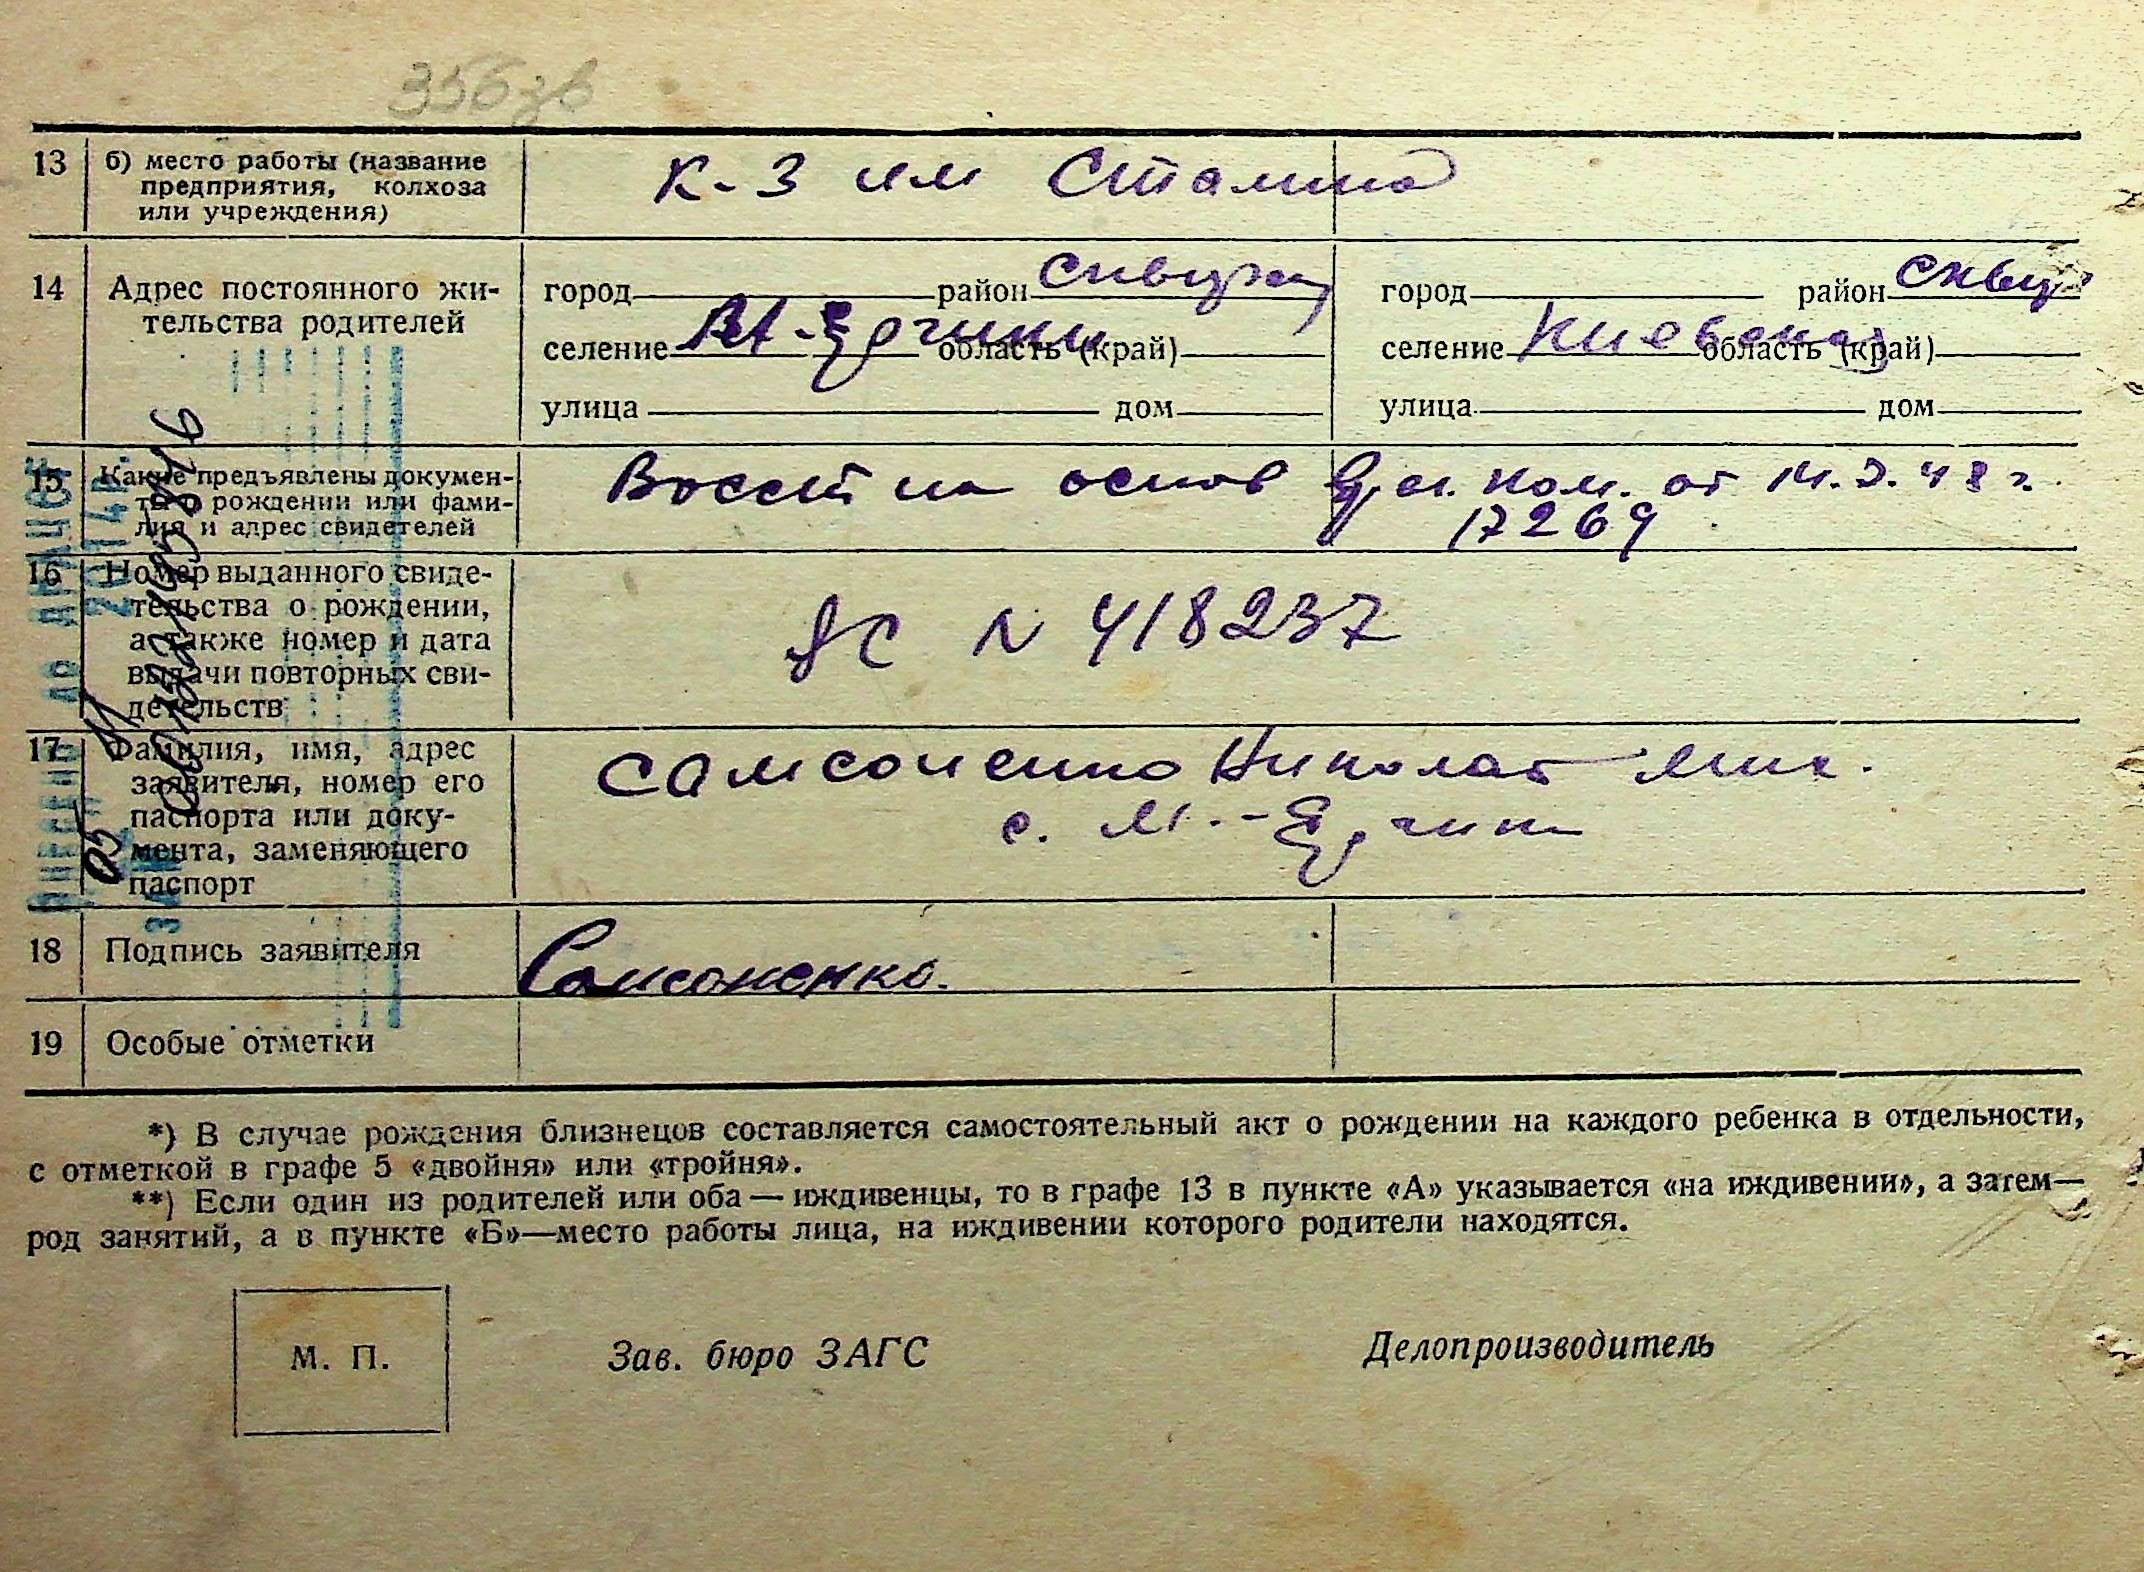 356 зв
13 б) место работы (название
предприятия, колхоза
или учреждения)
К-З им Сталина
14 Адрес постоянного жи-
тельства родителей
город район Сквирск
селение М-Ерчики область (край)
улица дом
город район Сквир
селение Киевская область (край)
улица дом
15 Какие предъявлены докумен-
ты о рождении или фами-
лия и адрес свидетелей
Восст на основ ком. от 48 г.
17269
16 Номер выданного свиде-
тельства о рождении,
а также номер и дата
выдачи повторных сви-
детельств
N 418237
17 Фамилия, имя, адрес
заявителя, номер его
паспорта или доку-
мента, заменяющего
паспорт
Самсоненко Николай Мих.
с. М.-Ерчики
18 Подпись заявителя
Самсоненко.
19 Особые отметки
*) В случае рождения близнецов составляется самостоятельный акт о рождении на каждого ребенка в отдельности,
с отметкой в графе 5 «двойня» или «тройня».
**) Если один из родителей или оба — иждивенцы, то в графе 13 в пункте «А» указывается «на иждивении», а затем—
род занятий, а в пункте «Б»—место работы лица, на иждивении которого родители находятся.
М. П.
Зав. бюро ЗАГС
Делопроизводитель